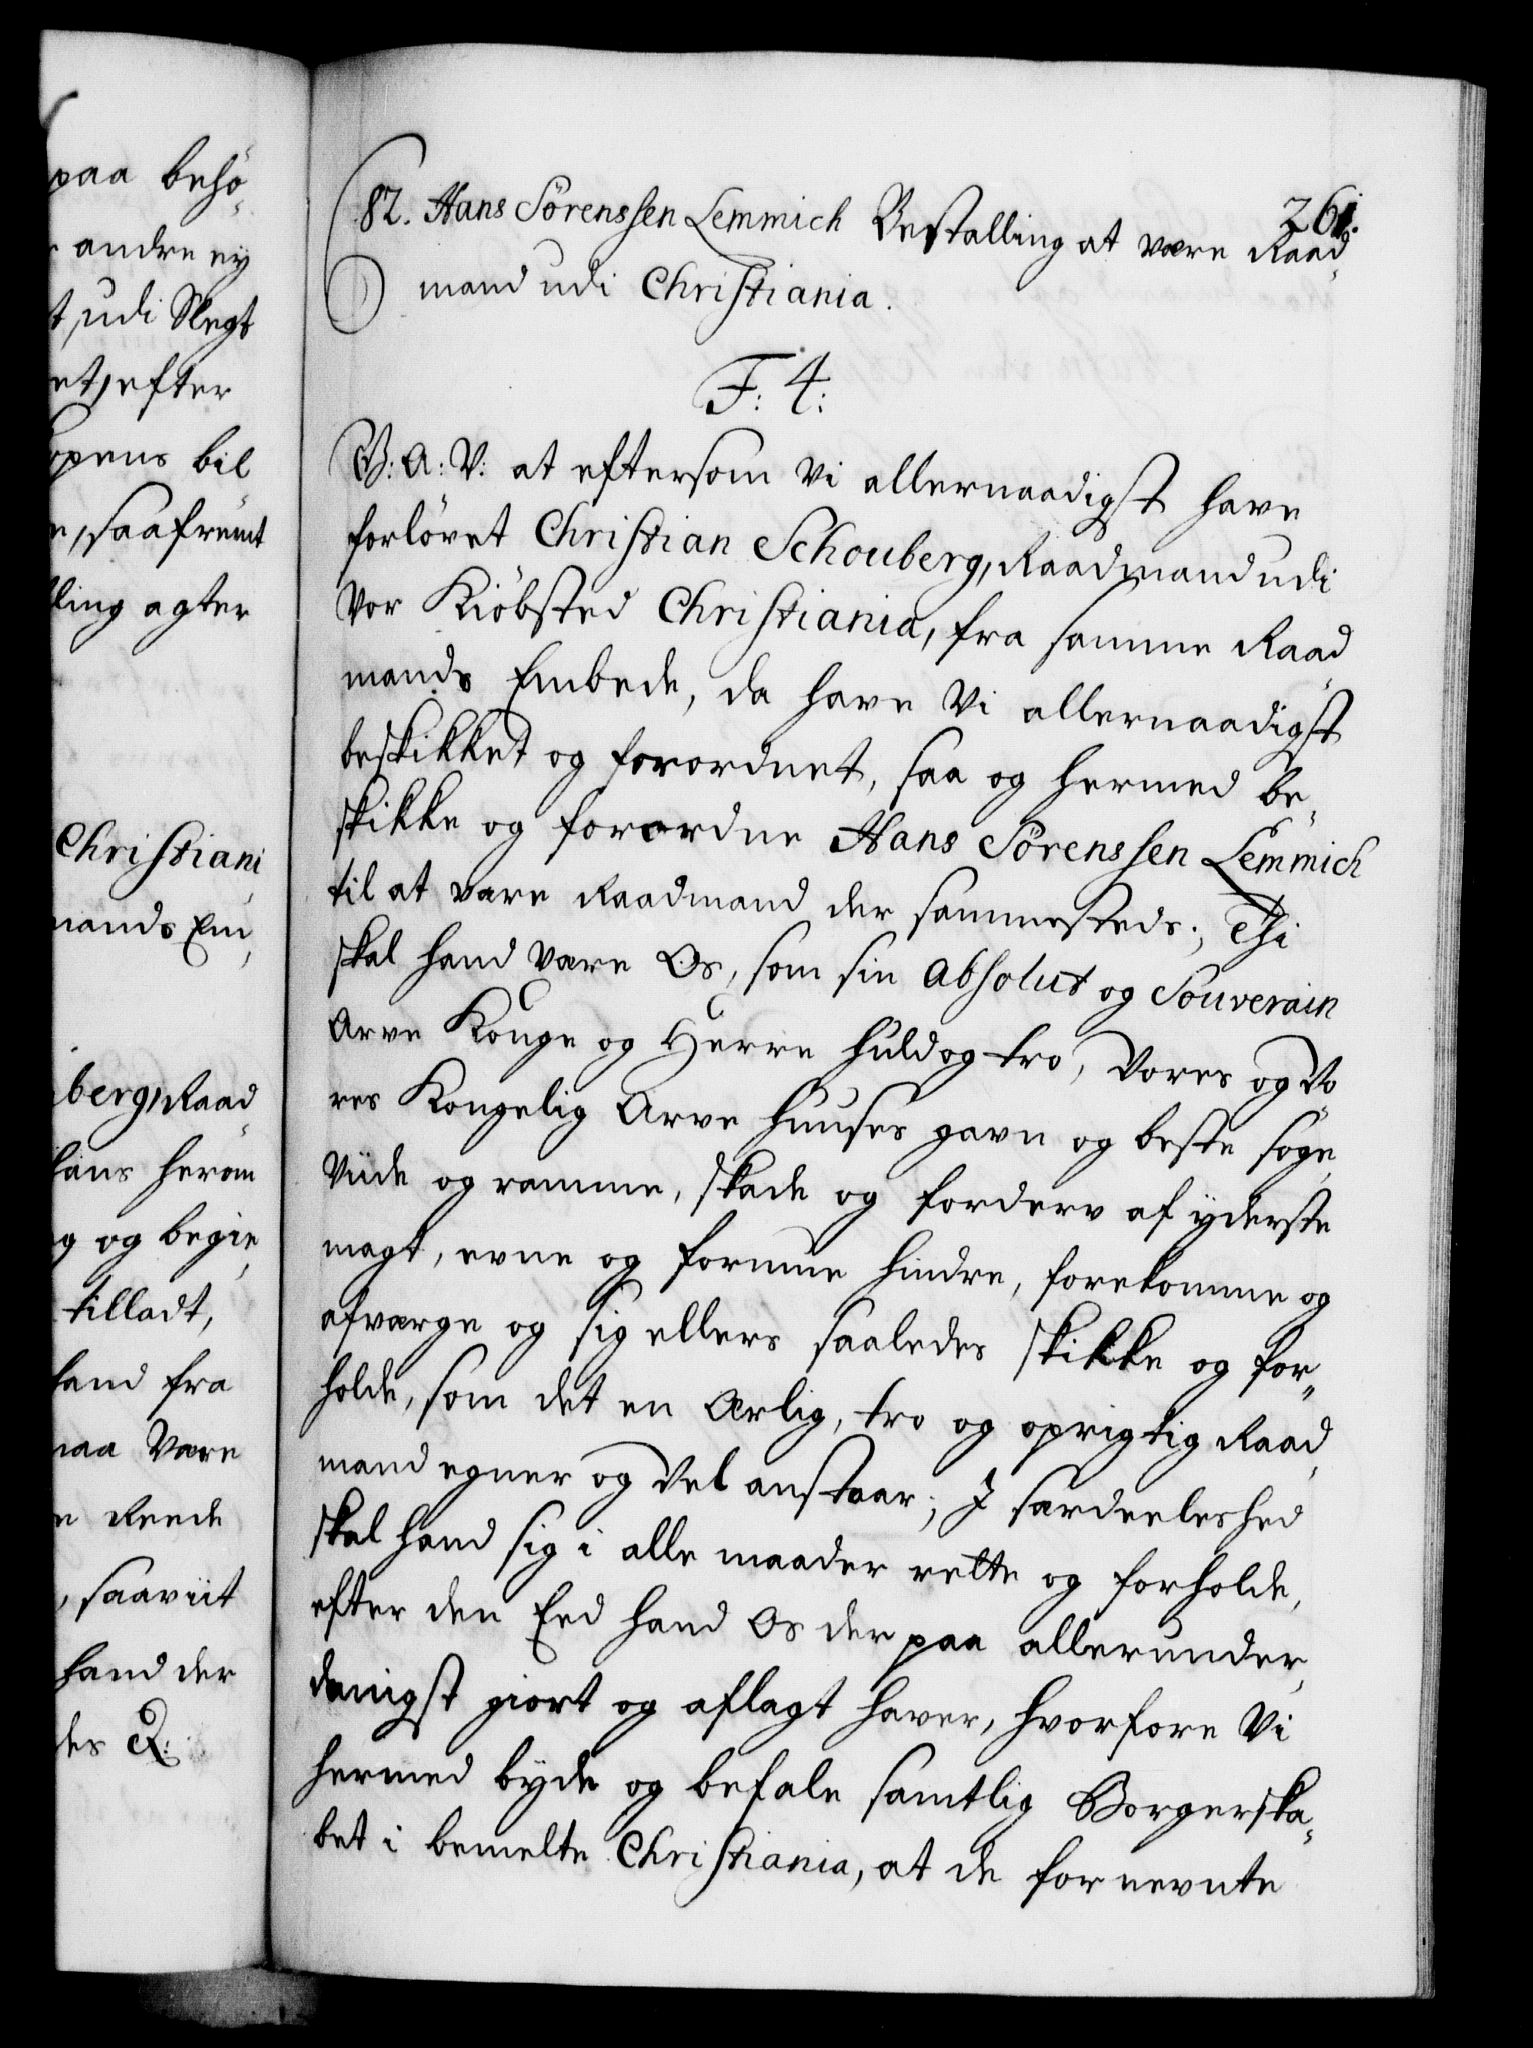 paa behö-
andre ey
t, udi Slegt
et, efter
pens bil
e, saafremt
ling agter
Christiani
mands Em-
berg, Raad-
hans herom
g og begie-
tilladt,
hand fra
maa være
n Reede
, saaviit
hand der
des &:
261.
82. Hans Sörenssen Lemmich Bestalling at være Raad-
mand udi Christiania.
F: 4:
G: A: V: at eftersom Vi allernaadigst have
forlövet Christian Schouberg, Raadmand udi
Vor Kiöbsted Christiania, fra samme Raad-
mands Embede, da have Vi allernaadigst
beskikket og forordnet, saa og hermed be-
skikke og forordne Hans Sörenssen Lemmich
til at være Raadmand der sammesteds; Thi
skal hand være Os, som sin absolut og Souverain
Arve Konge og Herre huld og tro, Vores og Vo-
res Kongelig Arve Huuses gavn og beste söge,
Viide og ramme, skade og forderv af yderste
magt, evne og formue hindre, forekomme og
afværge og sig ellers saaledes skikke og for-
holde, som det en Ærlig, tro og oprigtig Raad-
mand egner og vel anstaar; I særdeeleshed
skal hand sig i alle maader rette og forholde,
efter den Eed hand Os der paa allerunder-
danigst giort og aflagt haver, hvorfore Vi
hermed byde og befale samtlig Borgerska-
bet i bemelte Christiania, at de for nevnte